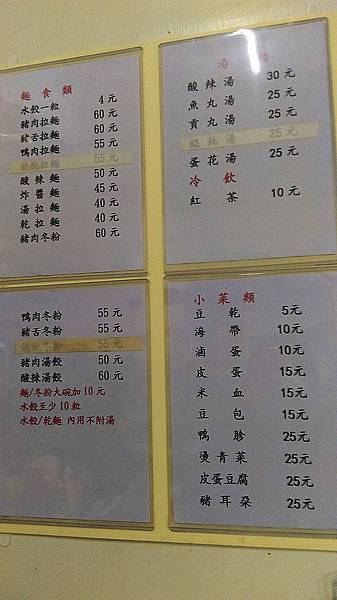 麵食類
水餃一粒 4元
豬肉拉麵 60元
豬舌拉麵 60元
鴨肉拉麵 55元
餛飩拉麵 55元
酸辣麵 50元
炸醬麵 45元
湯拉麵 40元
乾拉麵 40元
豬肉冬粉 60元
湯類
酸辣湯 30元
魚丸湯 25元
貢丸湯 25元
餛飩湯 25元
蛋花湯 25元
冷飲
紅茶 10元
鴨肉冬粉 55元
豬舌冬粉 55元
55元
豬肉湯餃 50元
酸辣湯餃 60元
麵/冬粉大碗加10元
水餃至少10粒
水餃/乾麵 內用不附湯
小菜類
豆乾 5元
海帶 10元
滷蛋 10元
皮蛋 15元
米血 15元
豆包 15元
鴨胗 25元
燙青菜 25元
皮蛋豆腐 25元
豬耳朵 25元